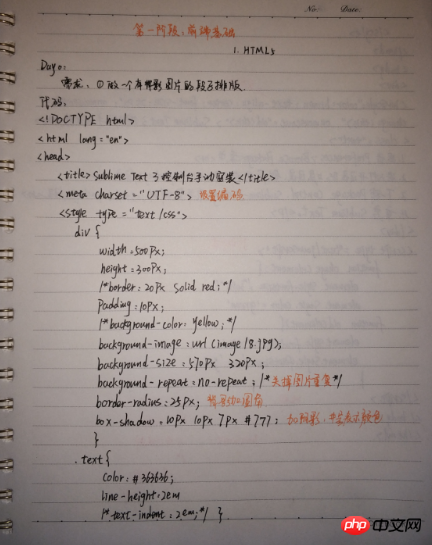 No.  Date.
第一阶段,前端基础
1. HTML5
Day0:
需求:①做一个有背影图片的段子排版
代码:
<!DOCTYPE html>
<html lang="en">
<head>
<title>Sublime Text 3 控制台手动安装</title>
<meta charset="UTF-8"> 设置编码
<style type="text/css">
div {
width:500px;
height:300px;
/*border:20px solid red;*/
padding:10px;
/*background-color:yellow;*/
background-image:url(image/8.jpg);
background-size:570px 320px;
background-repeat:no-repeat; /*去掉图片重复*/
border-radius:25px; 背景加圆角
box-shadow:10px 10px 7px #777; 加阴影,#号表示颜色
}
.text{
color:#363636;
line-height:2em
/*text-indent:2em;*/ }
php中文网